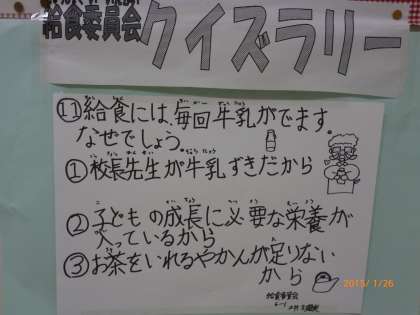 給食委員会
クイズラリー
⑪給食には、毎回牛乳がでます。
なぜでしょう。
①校長先生が牛乳ずきだから
②子どもの成長に必要な栄養が
入っているから
③お茶をいれるやかんが足りない
から
給食委員会
2015/1/26